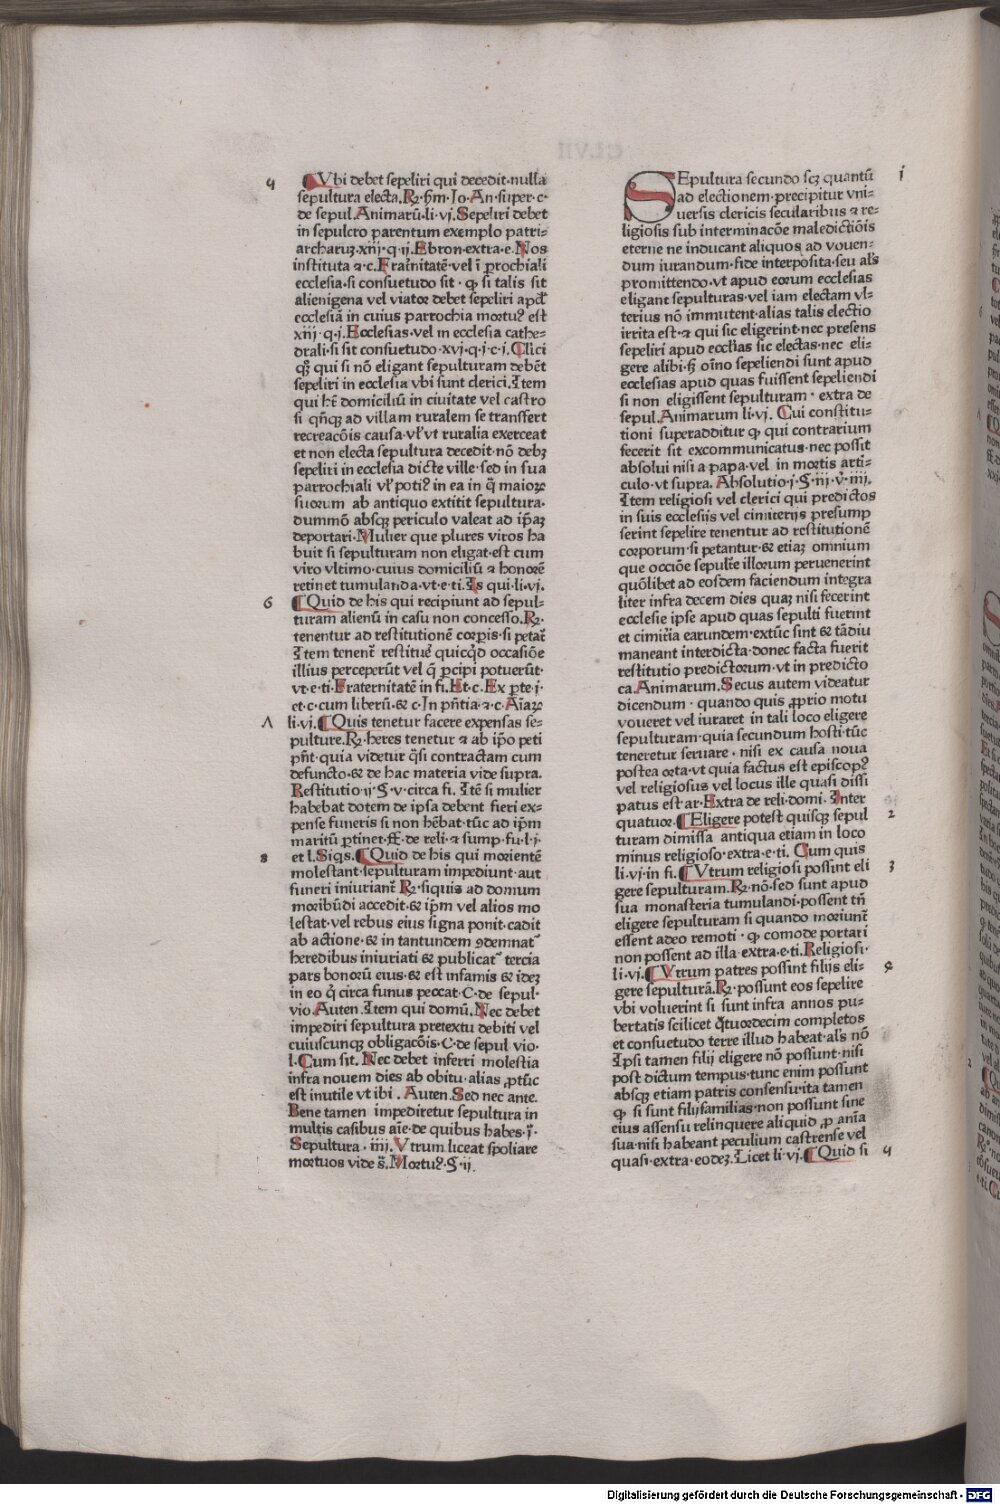 ꝯ
¶Vbi debet sepeliri qui decedit·nulla
sepultura electa.℞.ẜm·Jo·An·super·c·
de sepul.Animarū·li·vj·Sepeliri debet
in sepulcro parentum exemplo patri-
archarꝫ·xiij·q·ij·Ebron·extra·e·Nos
instituta ⁊·c·Fraťnitatē·vel ī ꝑrochiali
ecclesia·si consuetudo sit· ꝙ si talis sit
alienigena vel viator debet sepeliri apď
ecclesiā in cuius parrochia mortuꝰ est
xiij·q·j·Ecclesias·vel in ecclesia cathe-
drali·si sit consuetudo·xvj·q·j·c·j·Cľici
qꝫ qui si nō eligant sepulturam debēt
sepeliri in ecclesia vbi sunt clerici.Item
qui hēt domiciliū in ciuitate vel castro
si qn̄qꝫ ad villam ruralem se transfert
recreacōis causa·vľ vt ruralia exerceat
et non electa sepultura decedit·nō debꝫ
sepeliri in ecclesia dicte ville·sed in sua
parrochiali vľ potiꝰ in ea in q̄ maioꝝ
suorum ab antiquo extitit sepultura·
dummō absqꝫ periculo valeat ad ip̄aꝫ
deportari·Mulier que plures viros ha
buit si sepulturam non eligat·est cum
viro vltimo·cuius domiciliū ⁊ honorē
retinet tumulanda·vt·e·ti·Is qui·li·vj·
6
¶Quid de his qui recipiunt ad sepul-
turam alienū in casu non concesso.℞.
tenentur ad restitutionē corpis·si petať
Item tenenť restitueř quicqͥd occasiōe
illius perceperūt vel q̄ ꝑcipi potuerūt·
vt·e·ti·Fraternitatē in fi·Et·c·Ex ꝑte·j·
et·c·cum liberū·& c·In pn̄tia·⁊·c·Aīaꝝ
Λ
li·vj·¶Quis tenetur facere expensas se-
pulture.℞·heres tenetur ⁊ ab ip̄o peti
pn̄t·quia videtur q̄si contractam cum
defuncto·& de hac materia vide supra.
Restitutio·ij·§·v·circa fi. Itē si mulier
habebat dotem de ipsa debent fieri ex-
pense funeris si non hēbat·tūc ad ip̄m
maritū ꝑtinet·ff·de reli·⁊ sump·fu·l·j·
8
et l·Siqs.¶Quid de his qui morientē
molestant·sepulturam impediunt·aut
funeri iniurianť ℞·siquis ad domum
moribūdi accedit·& ip̄m vel alios mo
lestat·vel rebus eius signa ponit·cadit
ab actione·& in tantundem ꝯdemnať
heredibus iniuriati & publicať tercia
pars bonorū eius·& est infamis & ideꝫ
in eo ꝙ circa funus peccat·C·de sepul·
vio·Auten·Item qui domū·Nec debet
impediri sepultura pretextu debiti vel
cuiuscunqꝫ obligacōis·C·de sepul vio·
l·Cum sit. Nec debet inferri molestia
infra nouem dies ab obitu·alias ꝓtūc
est inutile vt ibi · Auten·Sed nec ante.
Bene tamen impediretur sepultura in
multis casibus aīe·de quibus habes·j̄·
Sepultura · iiij·Vtrum liceat spoliare
mortuos vide s̄·Mortuꝰ·§·ij·
j
SEpultura secundo scꝫ quantū
ad electionem·precipitur vni-
uersis clericis secularibus ⁊ re-
ligiosis sub interminacōe maledictiōis
eterne ne inducant aliquos ad vouen-
dum iurandum·fide interposita·seu aľs
promittendo·vt apud eorum ecclesias
eligant sepulturas·vel iam electam vl-
terius nō immutent·alias talis electio
irrita est·⁊ qui sic eligerint·nec presens
sepeliri apud ecclīas sic electas·nec eli-
gere alibi·ẜ oīno sepeliendi sunt apud
ecclesias apud quas fuissent sepeliendi
si non eligissent sepulturam · extra de
sepul·Animarum li·vj. Cui constitu-
tioni superadditur ꝙ qui contrarium
fecerit sit excommunicatus·nec possit
absolui nisi a papa·vel in mortis arti-
culo·vt supra. Absolutio·j·§·iij·ꝟ·iiij.
Item religiosi vel clerici qui predictos
in suis ecclesiis vel cimiterijs presump
serint sepelire tenentur ad restitutionē
corporum·si petantur·& etiaꝫ omnium
que occiōe sepulťe illorum peruenerint
quōlibet ad eosdem faciendum integra
liter infra decem dies quaꝫ nisi fecerint
ecclesie ipse apud quas sepulti fuerint
et cimiťia earundem·extūc sint & tādiu
maneant interdicta·donec facta fuerit
restitutio predictorum·vt in predicto
ca·Animarum.Secus autem videatur
dicendum · quando quis ꝓprio motu
voueret vel iuraret in tali loco eligere
sepulturam·quia secundum hosti·tūc
teneretur seruare · nisi ex causa noua
postea orta·vt quia factus est episcopꝰ
vel religiosus vel locus ille quasi dissi
patus est·ar·Extra de reli·domi·Inter
2
quatuor.¶Eligere potest quisqꝫ sepul
turam dimissa antiqua etiam in loco
minus religioso·extra·e·ti·Cum quis
3
li·vj·in fi.¶Vtrum religiosi possint eli
gere sepulturam.℞·nō·sed sunt apud
sua monasteria tumulandi·possent tn̄
eligere sepulturam si quando moriunť
essent adeo remoti · ꝙ comode portari
non possent ad illa·extra·e·ti·Religiosi·
ę
li·vj.¶Vtrum patres possint filijs eli-
gere sepulturā.℞·possunt eos sepelire
vbi voluerint si sunt infra annos pu-
bertatis scilicet q̄tuordecim completos
et consuetudo terre illud habeat·aľs nō
Ipsi tamen filij eligere nō possunt·nisi
post dictum tempus·tunc enim possunt
absqꝫ etiam patris consensu·ita tamen
ꝙ si sunt filijfamilias·non possunt sine
eius assensu relinquere aliquid ꝓ anīa
sua·nisi habeant peculium castrense vel
ꝯ
quasi·extra·eodeꝫ.Licet li·vj·¶Quid si
Digitalisierung gefördert durch die Deutsche Forschungsgemeinschaft - DFG